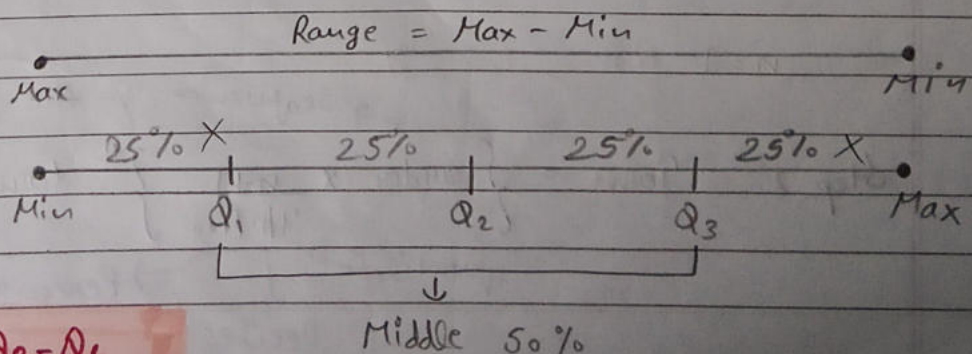 Range = Max - Min
Max Min
25% X 25% 25% 25% X
Min Q1 Q2 Q3 Max
Middle 50%
- Q1